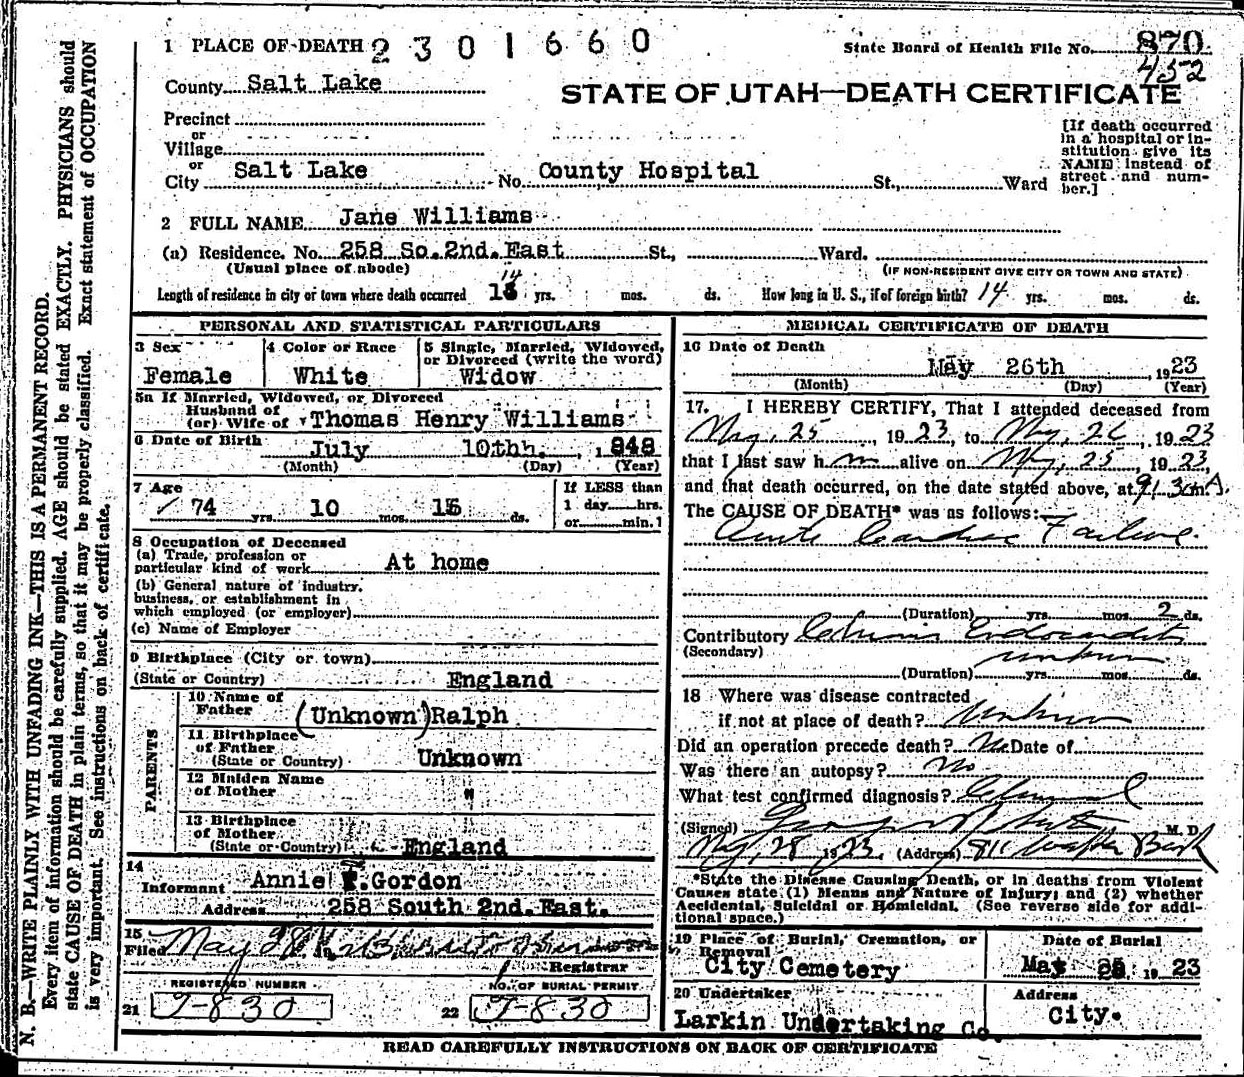 1 PLACE OF DEATH 2301660 State Board of Health File No. 870
452
County Salt Lake
STATE OF UTAH—DEATH CERTIFICATE
Precinct
or
Village
or
City Salt Lake No. County Hospital St., Ward
[If death occurred
in a hospital or in-
stitution give its
NAME instead of
street and num-
ber.]
2 FULL NAME Jane Williams
(a) Residence. No. 258 So. 2nd. East St., Ward.
(Usual place of abode) (IF NON-RESIDENT GIVE CITY OR TOWN AND STATE)
Length of residence in city or town where death occurred 14 yrs. mos. ds. How long in U. S., if of foreign birth? 14 yrs. mos. ds.
PERSONAL AND STATISTICAL PARTICULARS
3 Sex
Female
4 Color or Race
White
5 Single, Married, Widowed,
or Divorced (write the word)
Widow
5a If Married, Widowed, or Divorced
Husband of
(or) Wife of Thomas Henry Williams
6 Date of Birth July 10th. , 1848
(Month) (Day) (Year)
7 Age
74 yrs. 10 mos. 15 ds.
If LESS than
1 day hrs.
or min.
8 Occupation of Deceased
(a) Trade, profession or
particular kind of work At home
(b) General nature of industry,
business, or establishment in
which employed (or employer)
(c) Name of Employer
9 Birthplace (City or town)
(State or Country) England
PARENTS
10 Name of
Father (Unknown) Ralph
11 Birthplace
of Father
(State or Country) Unknown
12 Maiden Name
of Mother "
13 Birthplace
of Mother
(State or Country) England
14
Informant Annie Gordon
Address 258 South 2nd. East.
15
Filed May 28
Registrar
REGISTERED NUMBER
21 T-830
NO. OF BURIAL PERMIT
22 T-830
MEDICAL CERTIFICATE OF DEATH
16 Date of Death
May 26th , 1923
(Month) (Day) (Year)
17. I HEREBY CERTIFY, That I attended deceased from
May, 25 , 1923, to May, 26 , 1923
that I last saw h alive on May, 25 , 1923,
and that death occurred, on the date stated above, at 9:30 m. A.
The CAUSE OF DEATH* was as follows:
Acute Cardiac Failure.
(Duration) yrs. mos. 2 ds.
Contributory Chronic Endocarditis
(Secondary) unknown
(Duration) yrs. mos. ds.
18 Where was disease contracted
if not at place of death? Unknown
Did an operation precede death? No Date of
Was there an autopsy? No
What test confirmed diagnosis? Clinical
(Signed) M. D.
May, 28 1923. (Address) 811 Walker Bank
*State the Disease Causing Death, or in deaths from Violent
Causes state (1) Means and Nature of Injury; and (2) whether
Accidental, Suicidal or Homicidal. (See reverse side for addi-
tional space.)
19 Place of Burial, Cremation, or
Removal
City Cemetery
Date of Burial
May 1923
20 Undertaker
Larkin Undertaking Co.
Address
City.
READ CAREFULLY INSTRUCTIONS ON BACK OF CERTIFICATE
N. B.—WRITE PLAINLY WITH UNFADING INK—THIS IS A PERMANENT RECORD.
Every item of information should be carefully supplied. AGE should be stated EXACTLY. PHYSICIANS should
state CAUSE OF DEATH in plain terms, so that it may be properly classified. Exact statement of OCCUPATION
is very important. See instructions on back of certificate.